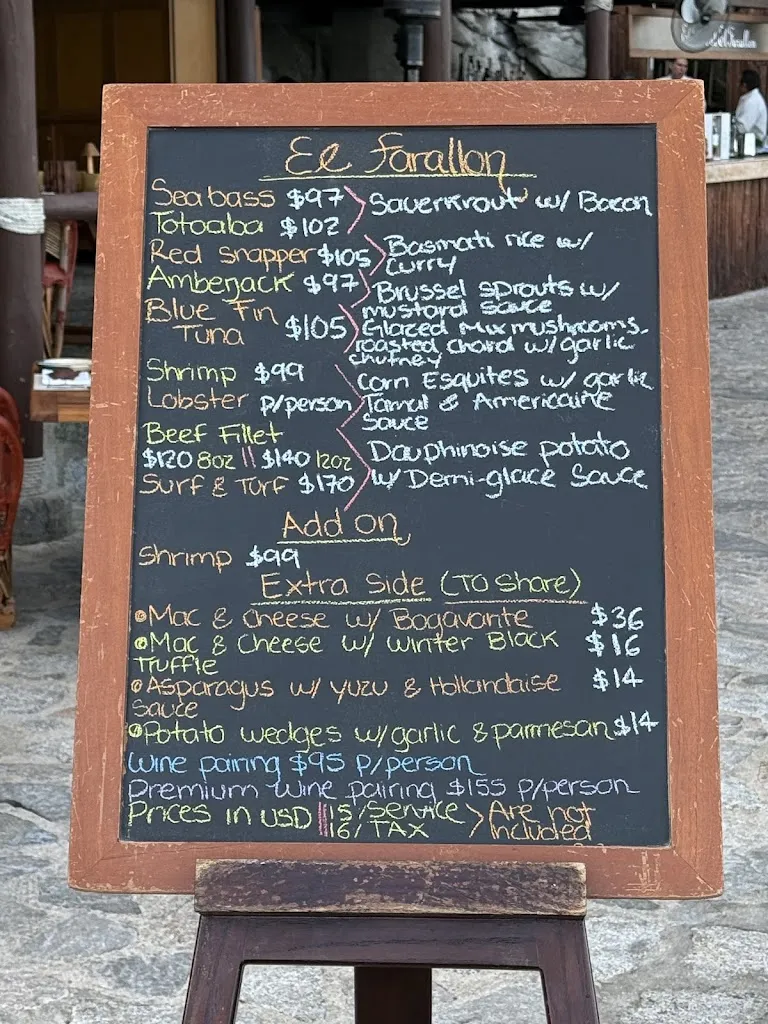 El Farallon
Seabass $97
Totoaba $102
Sauerkrout w/ Bacon
Red Snapper $105
Basmati rice w/
curry
Amberjack $97
Brussel sprouts w/
mustard sauce
Blue Fin
Tuna $105
Glazed Mix mushrooms,
roasted chard w/ garlic
chutney
Shrimp $99
Lobster p/person
Corn Esquites w/ garlic
Tamal & Americaine
Sauce
Beef Fillet
$120 8oz || $140 12oz
Surf & Turf $170
Dauphinoise potato
w/ Demi-glace Sauce
Add on
Shrimp $99
Extra Side (To share)
Mac & Cheese w/ Bogavante $36
Mac & Cheese w/ Winter Black $16
Truffle
Asparagus w/ yuzu & Hollandaise $14
Sauce
Potato wedges w/ garlic & parmesan $14
Wine pairing $95 p/person
Premium Wine pairing $155 p/person
Prices in USD || 15/Service > Are not
16/TAX Included